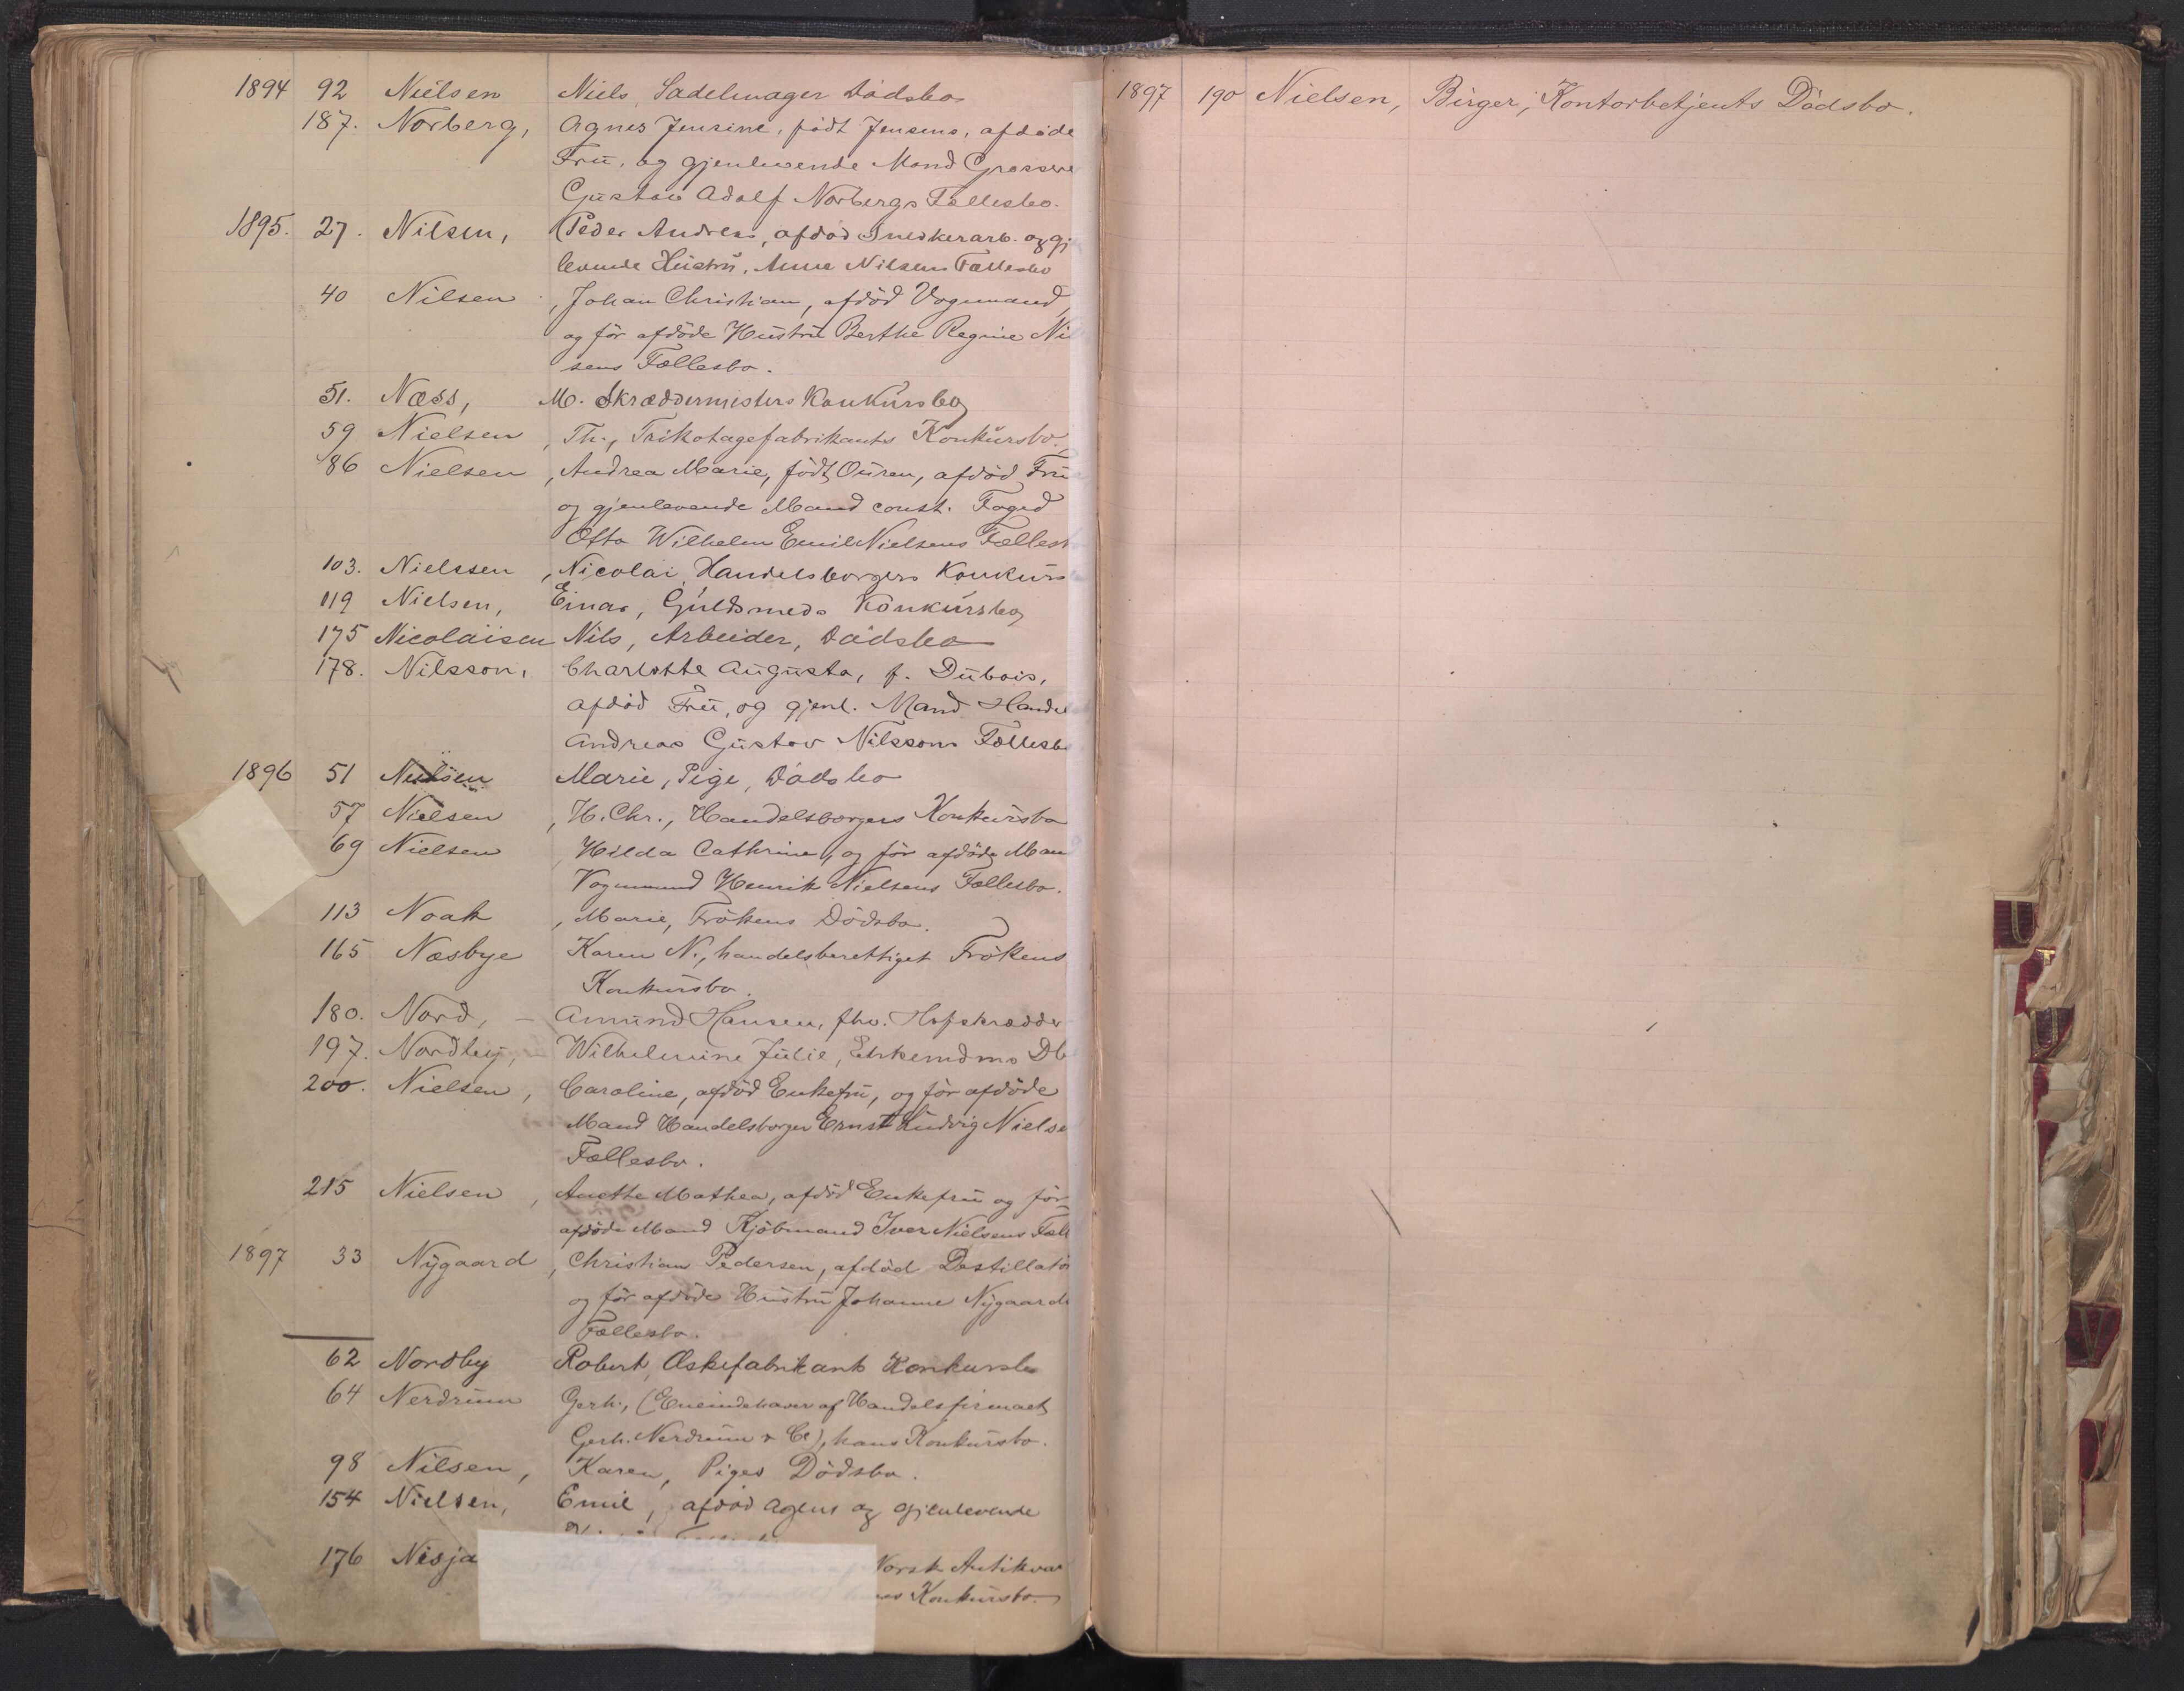 1894 92 Nielsen Niels, Sadelmager Dødsbo
187. Norberg, Agnes Jensine, født Jensens, afdøde
Frü, og gjenlevende Mand Grossere
Güstav Adolf Norbergs Fællesbo.
1895. 27. Nilsen, Peder Andreas, afdød Snedkerarb. og gj
levende Hüstrü, Anne Nilsens Fællesbo
40 Nilsen, Johan Christian, afdød Vognmand
og før afdøde Hüstrü Berthe Regine Nil
sens Fællesbo.
51. Næss, M. Skræddermesters Konkürsbo
59 Nielsen, Th., Trikotagefabrikants Konkürsbo.
86 Nielsen, Andrea Marie, født Oüren, afdød Frü
og gjenlevende Mand const. Foged
Otto Wilhelm Emil Nielsens Fællesb
103. Nielssen, Nicolai, Handelsborgers Konkürs
119 Nielsen, Einar, Güldsmeds Konkürsbo
175 Nicolaisen Nils, Arbeider, Dødsbo
178. Nilsson, Charlotte Aügüsta, f. Dübois,
afdød Frü, og gjenl. Mand Handel
Andreas Güstav Nilssons Fællesb
1896 51 Nielsen Marie, Pige, Dødsbo
57 Nielsen, H. Chr., Handelsborgers Konkürsbo
69 Nielsen Hilda Cathrine, og før afdøde Man
Vognmand Henrik Nielsens Fællesbo.
113 Noak, Marie, Frøkens Dødsbo.
165 Næsbye Karen N., handelsberettiget Frøkens
Konkürsbo.
180. Nord, – Amünd Hansen, fhv. Hofskrædder
197. Nordby, Wilhelmine Jülie, Enkemdms Db
200. Nielsen, Caroline, afdød Enkefrü, og før afdøde
Mand Handelsborger Ernst Lüdvig Nielse
Fællesbo.
215 Nielsen, Anette Mathea, afdød Enkefrü og før
afdøde Mand Kjøbmand Iver Nielsens Fæll
1897 33 Nygaard, Christian Pedersen, afdød Destillatø
og før afdøde Hüstrü Johanne Nygaards
Fællesbo.
62 Nordby Robert, Æskefabrikants Konkursbo
64 Nerdrüm Gerh., (Eneindehaver af Handelsfirmaet
Gerh. Nerdrüm & Co), hans Konkürsbo.
98 Nilsen, Karen, Piges Dødsbo.
154 Nielsen, Emil, afdød Agent og gjenlevende
176 Nisja Norsk Antikvar
Konkürsbo.
1897 190 Nielsen, Birger, Kontorbetjents Dødsbo.